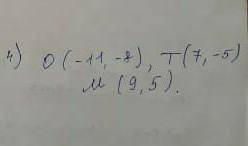 4) O (-11, -8), T(7, -5)
M (9, 5).